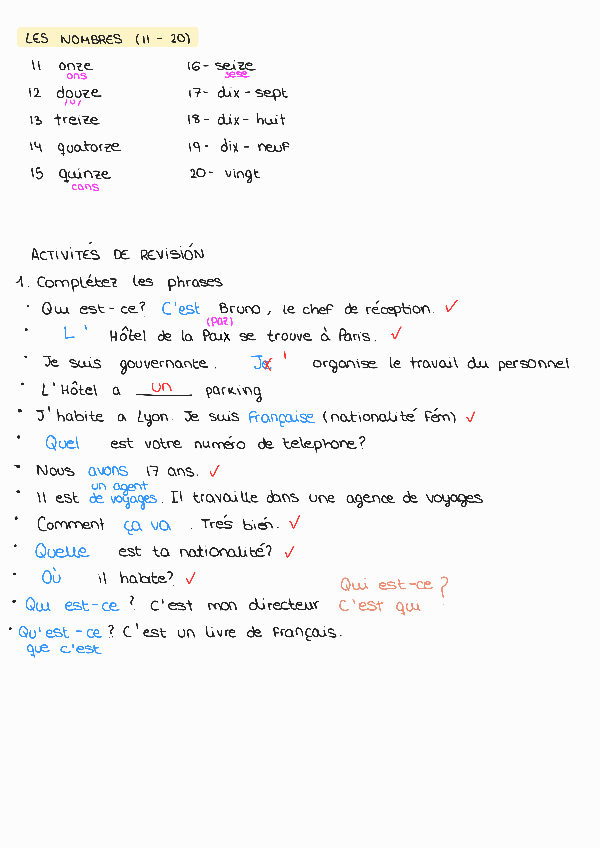 LES NOMBRES (11 - 20)
11 onze
ons
12 douze
13 treize
14 quatorze
15 quinze
cans
16 - seize
sese
17 - dix - sept
18 - dix - huit
19 - dix - neuf
20 - vingt
ACTIVITÉS DE REVISIÓN
1. Complétez les phrases
· Qui est-ce? C'est Bruno, le chef de réception. ✓
(paz)
· L' Hôtel de la Paix se trouve à Paris. ✓
· Je suis gouvernante. Je ' organise le travail du personnel
· L'Hôtel a un parking
· J'habite a Lyon. Je suis Française (nationalité Fém) ✓
· Quel est votre numéro de telephone?
· Nous avons 17 ans. ✓
un agent
· Il est de voyages. Il travaille dans une agence de voyages
· Comment ça va . Trés bién. ✓
· Quelle est ta nationalité? ✓
· Où il habite? ✓
Qui est-ce?
· Qui est-ce ? C'est mon directeur C'est qui
· Qu'est-ce ? C'est un livre de Français.
que c'est